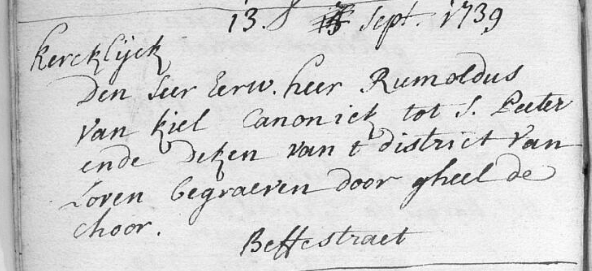 13. 8 Sept. 1739
kercklijck
Den seer Eerw. heer Rumoldus
van kiel Canonick tot S. Peeter
ende deken van t district van
Loven begraeven door gheel de
choor.
Beffestraet